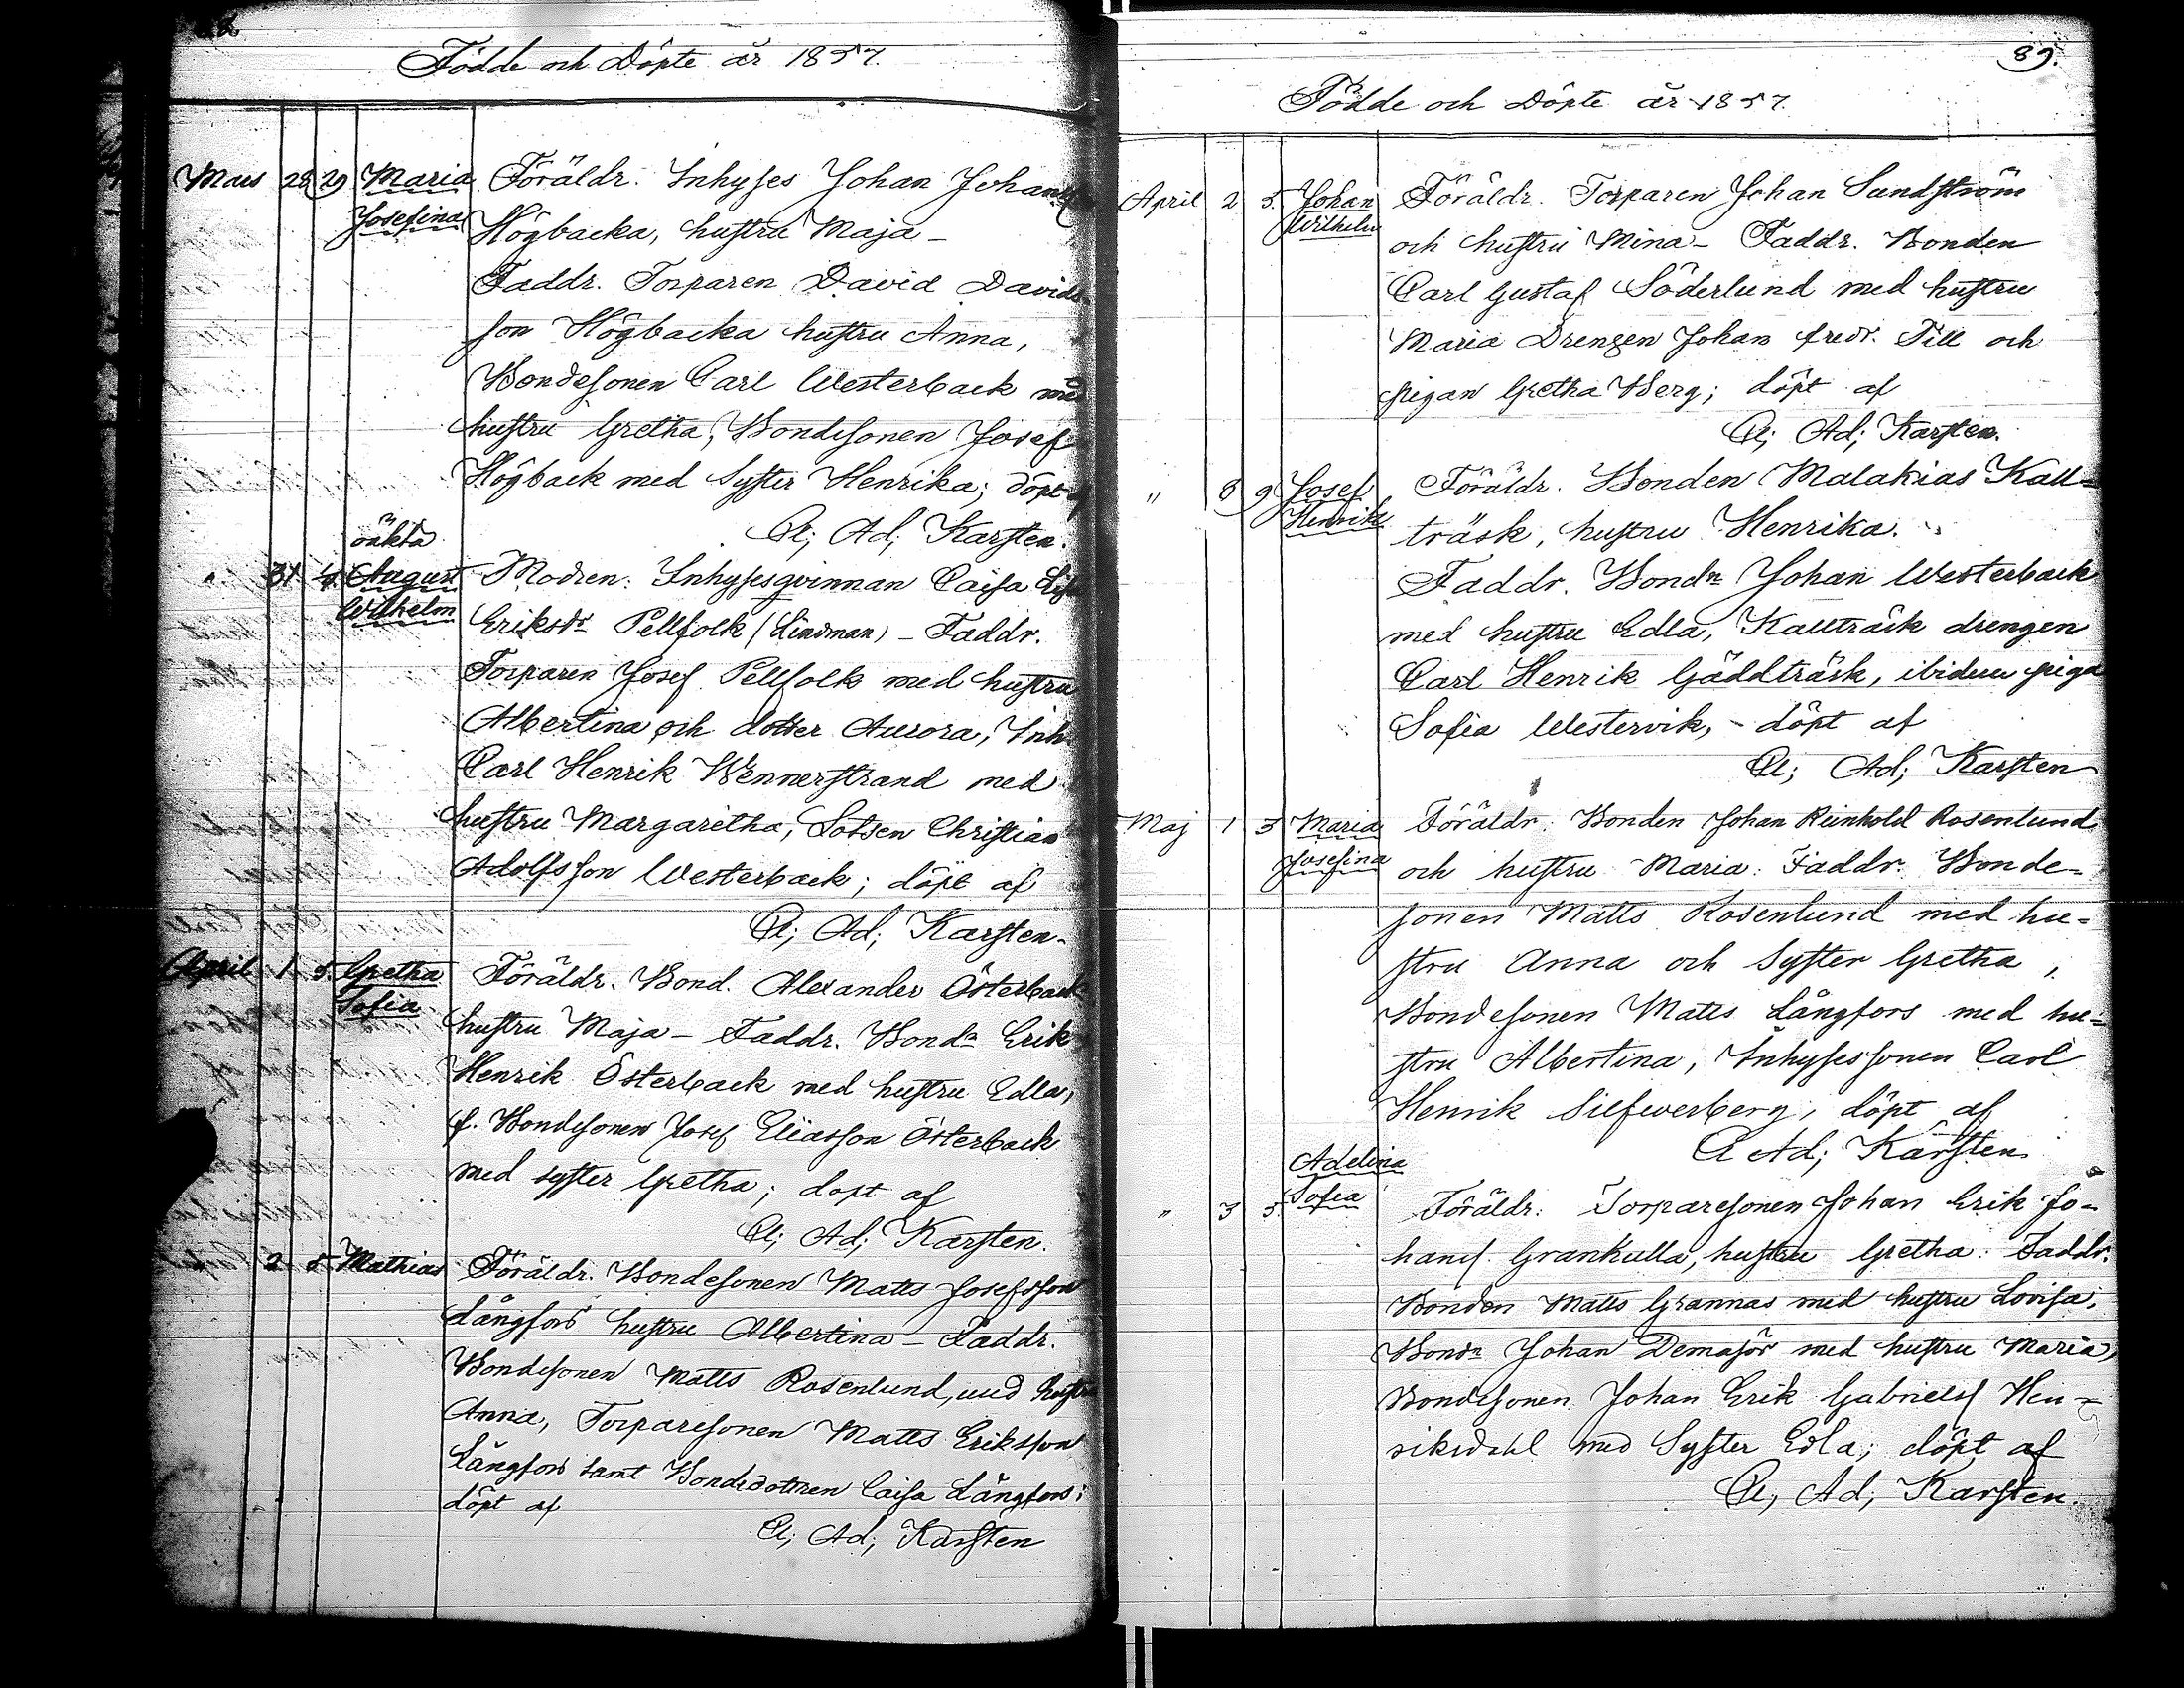 Födde och Döpte år 1857.
Mars 28 29 Maria Föräldr. Inhyses Johan Johansson
Josefina Högbacka, hustru Maja –
Faddr. Torparen David Davids-
son Högbacka hustru Anna,
Bondesonen Carl Westerback med
hustru Gretha, Bondesonen Josef
Högback med Syster Henrika; döpt af
Cl; Ad; Karsten.
oäkta
" 31 August Modren: Inhysesqvinnan Caisa Lisa
Wilhelm Eriksdr Pellfolk (Lindman) – Faddr.
Torparen Josef Pellfolk med hustru
Albertina och dotter Aurora, Inh.
Carl Henrik Wennerstrand med
hustru Margaretha, Lotsen Christian
Adolfsson Westerback; döpt af
Cl; Ad; Karsten.
April 1 5. Gretha Föräldr. Bond. Alexander Österback
Sofia hustru Maja – Faddr. Bondn Erik
Henrik Österback med hustru Edla,
f. Bondesonen Josef Eliasson Österback
med syster Gretha; döpt af
Cl; Ad; Karsten.
2 5 Mathias Föräldr. Bondesonen Matts Josefsson
Långfors hustru Albertina – Faddr.
Bondesonen Matts Rosenlund, med hustru
Anna, Torparesonen Matts Eriksson
Långfors samt Bondedottren Caisa Långfors;
döpt af
Cl; Ad; Karsten
89.
Födde och Döpte år 1857.
April 2 5. Johan Föräldr. Torparen Johan Sundström
Wilhelm och hustru Mina – Faddr. Bonden
Carl Gustaf Söderlund med hustru
Maria Drengen Johan fredr. Till och
pigan Gretha Berg; döpt af
Cl; Ad; Karsten.
" 8 9 Josef Föräldr. Bonden Malakias Kall-
Henrik träsk, hustru Henrika.
Faddr. Bondn Johan Westerback
med hustru Edla, Kallträsk drengen
Carl Henrik Gäddträsk, ibidem piga
Sofia Westervik, – döpt af
Cl; Ad; Karsten
Maj 1 3 Maria Föräldr. Bonden Johan Reinhold Rosenlund
Josefina och hustru Maria. Faddr. Bonde-
sonen Matts Rosenlund med hu-
stru Anna och Syster Gretha,
Bondesonen Matts Långfors med hu-
stru Albertina, Inhysessonen Carl
Henrik Silfwerberg, döpt af
Cl Ad; Karsten
Adelina
" 3 5. Sofia Föräldr: Torparesonen Johan Erik Jo-
hans. Grankulla, hustru Gretha: Faddr.
Bonden Matts Grannas med hustru Lovisa,
Bondn Johan Demasör med hustru Maria,
Bondesonen Johan Erik Gabriels Hen-
riksdahl med Syster Edla; döpt af
Cl, Ad, Karsten.